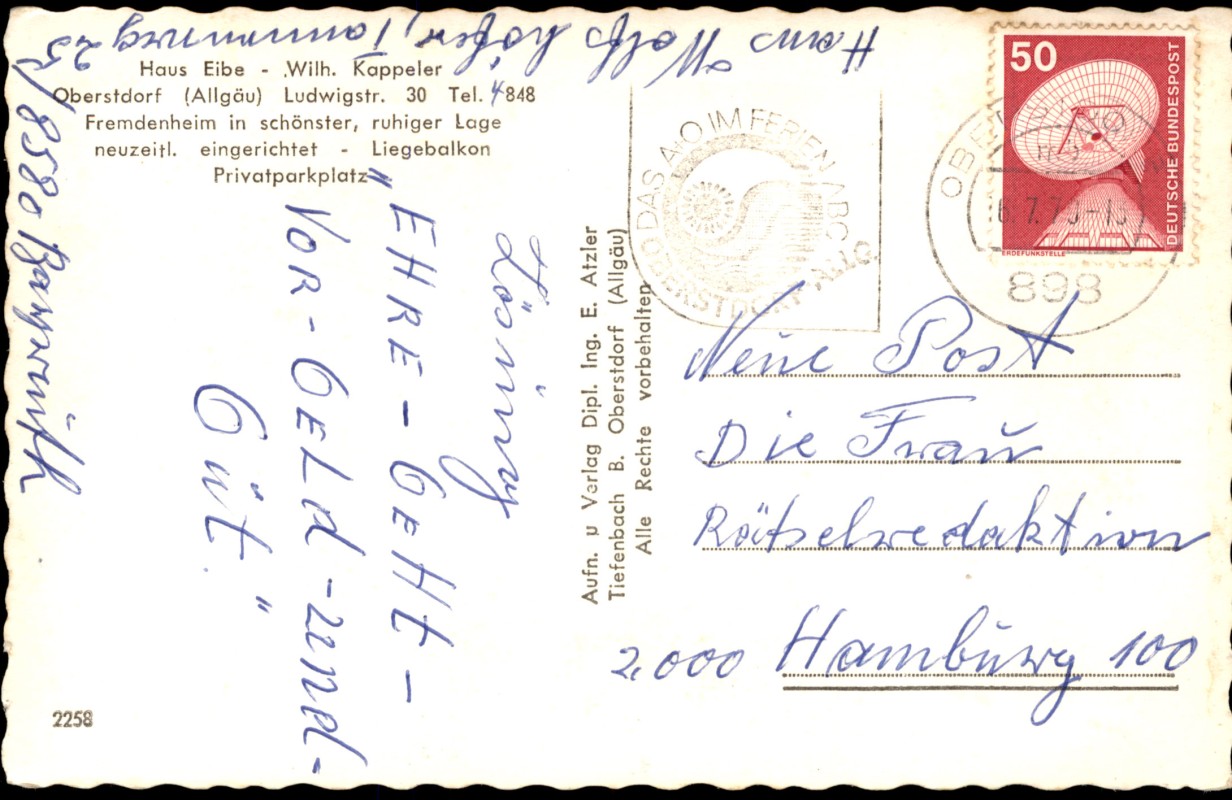 Hans Wolfshöfer, Tannenweg 25/
8580 Bayreuth
Haus Eibe - Wilh. Kappeler
Oberstdorf (Allgäu) Ludwigstr. 30 Tel. 4848
Fremdenheim in schönster, ruhiger Lage
neuzeitl. eingerichtet - Liegebalkon
Privatparkplatz
Lösung
"EHRE - GEHt -
VOR - GELd - und -
Gut"
2258
Aufn. u Verlag Dipl. Ing. E. Atzler
Tiefenbach B. Oberstdorf (Allgäu)
Alle Rechte vorbehalten
DAS A-O IM FERIEN ABC
OBERSTDORF
50
DEUTSCHE BUNDESPOST
ERDEFUNKSTELLE
898
Neue Post
Die Frau
Rätselredaktion
2000 Hamburg 100